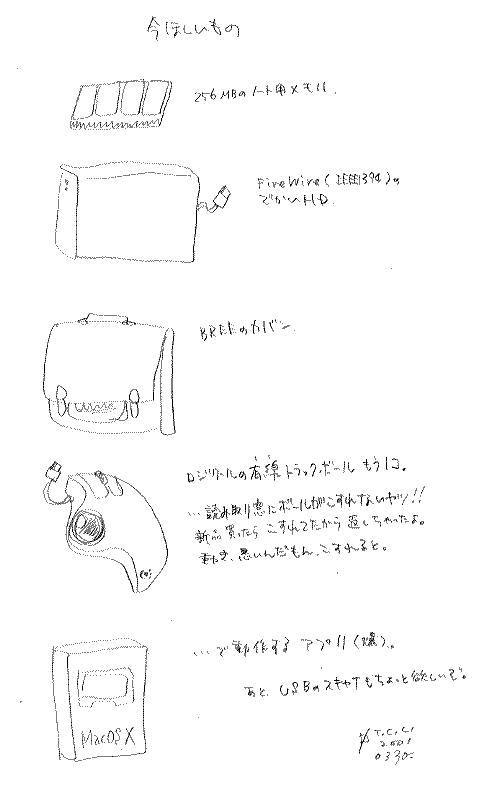 今ほしいもの
256MBのノート用メモリ.
FireWire(IEEE394)の
でかいHD.
BREEのカバン.
ロジクールの有線トラックボール もう1コ。
…読み取り窓にボールがこすれないヤツ!!
新品買ったら こすれてたから 返しちゃったよ。
動き、悪いんだもん、こすれると。
MacOSX
…で動作する アプリ(爆)。
あと、USBのスキャナもちょっと欲しいぞ。
T.C.C!
2001
0330